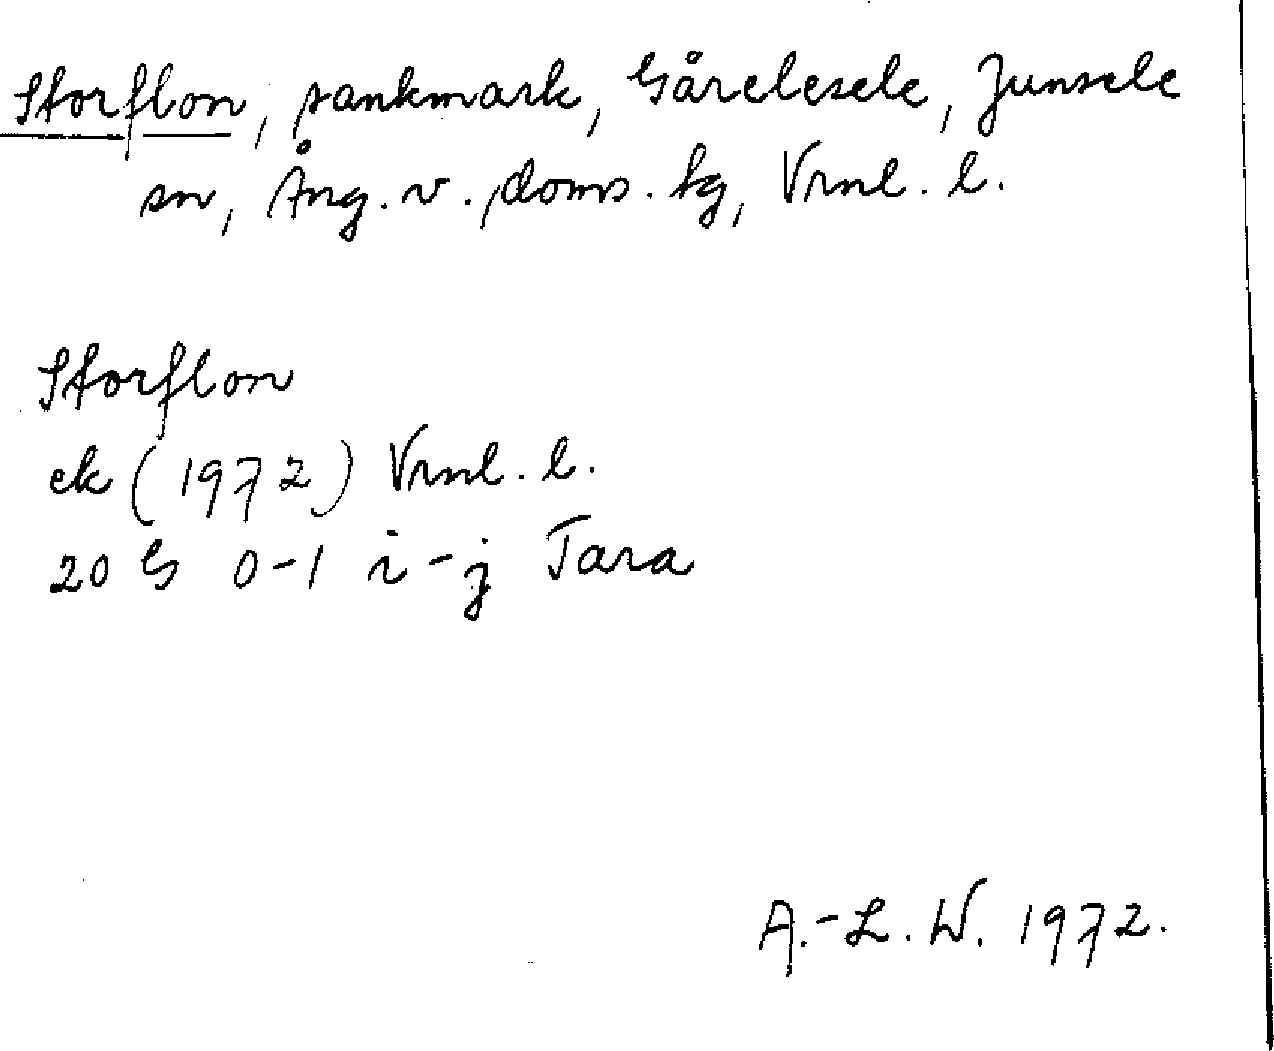 Storflon, sankmark, Gårelesele, Junsele
sn, Ång. v., doms. kg, Vrnl. l.
Storflon
ek (1972) Vrnl. l.
20 G 0-1 i-j Tara
A.-L. W. 1972.